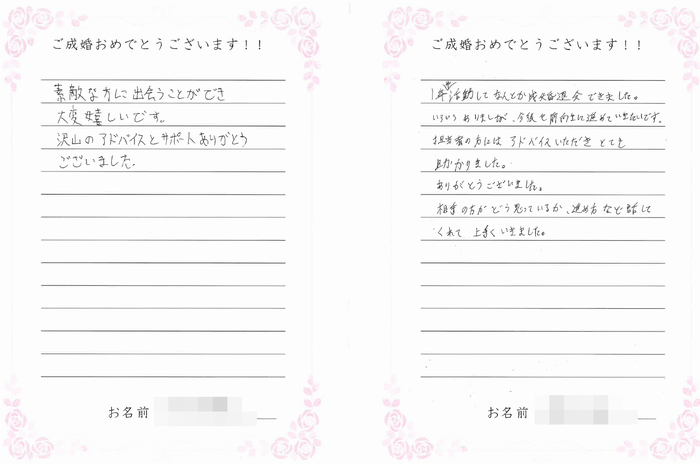 ご成婚おめでとうございます！！
素敵な方に出会うことができ
大変嬉しいです。
沢山のアドバイスとサポートありがとう
ございました.
お名前
ご成婚おめでとうございます！！
1年活動してなんとか成婚退会できました。
いろいろありましたが、今後も前向きに進めていきたいです。
担当者の方にはアドバイスいただきとても
助かりました。
ありがとうございました。
相手の方がどう思っているか、進め方など話して
くれて上手くいきました。
お名前